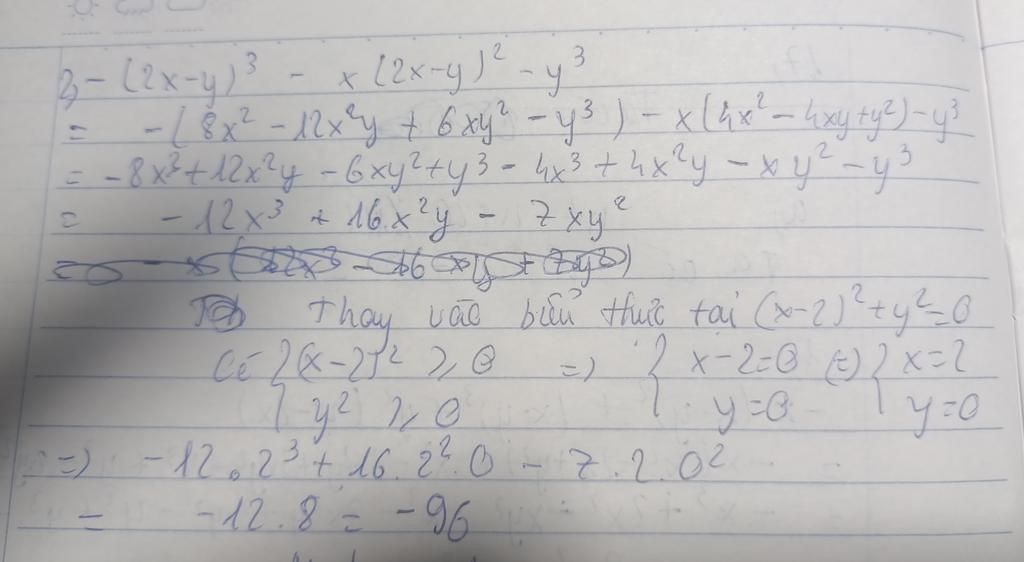 2, -(2x-y)³ - x(2x-y)² - y³
= -(8x² - 12x²y + 6xy² - y³) - x(4x² - 4xy + y²) - y³
= -8x³ + 12x²y - 6xy² + y³ - 4x³ + 4x²y - xy² - y³
= -12x³ + 16x²y - 7xy²
Thay vào biểu thức tại (x-2)² + y² = 0
Có { (x-2)² ≥ 0 => { x-2=0 (=) { x=2
y² ≥ 0 y=0 y=0
=> -12.2³ + 16.2².0 - 7.2.0²
= -12.8 = -96